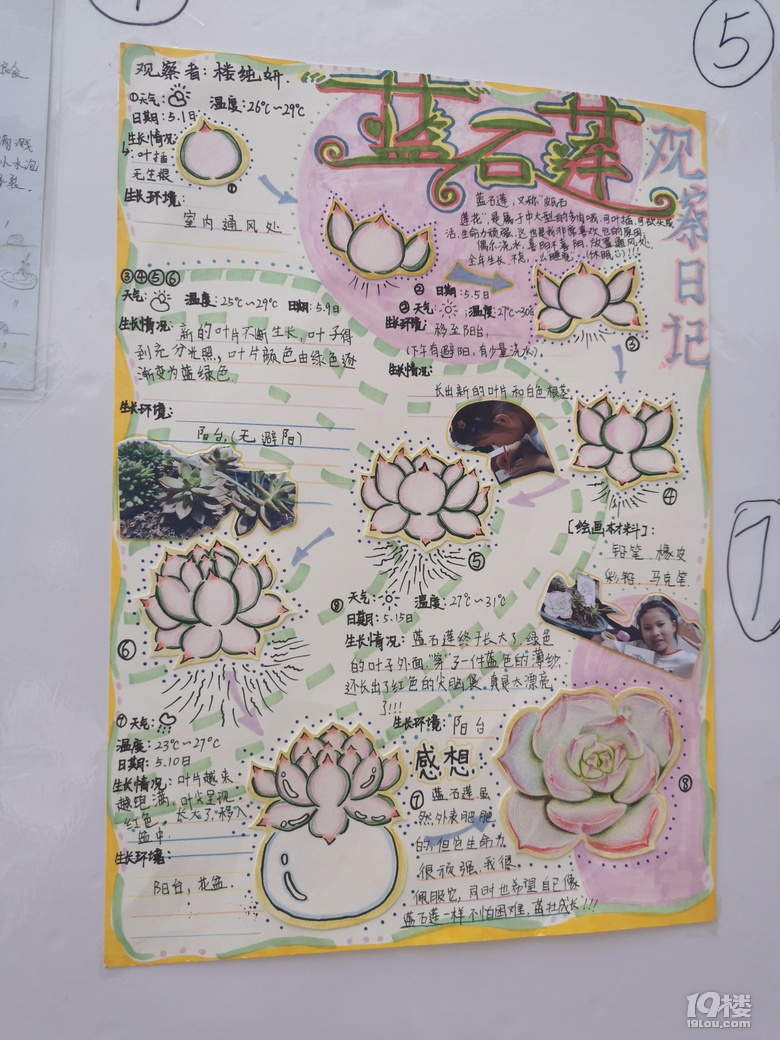 ⑤
观察者：楼纯妍.
蓝石莲
观察日记
①天气：
温度：26℃～29℃
日期：5.1日
生长情况：
叶插
无生根
①
生长环境：
室内通风处
蓝石莲，又称"皱石
莲花"，是属于中大型的多肉哦，可叶插，可砍头成
活，生命力顽强，这也是我非常喜欢它的原因，
偶尔浇水，喜阳不喜阴，放置通风处，
全年生长
(休眠
② 日期：5.5日
②天气：
温度：27℃～30℃
生长环境：移至阳台，
(下午有避阳，有少量浇水)
生长情况：
长出新的叶片和白色根茎
③
③④⑤⑥
天气：
温度：25℃～29℃ 日期：5.9日
生长情况：新的叶片不断生长，叶子得
到充分光照，叶片颜色由绿色逐
渐变为蓝绿色.
生长环境：
阳台，(无避阳)
④
[绘画材料]：
铅笔、橡皮
彩铅、马克笔
⑤
⑥
⑧天气：
温度：27℃～31℃
日期：5.15日
生长情况：蓝石莲终于长大了，绿色
的叶子外面，"穿"了一件蓝色的薄纱，
还长出了红色的尖脑袋，真是太漂亮
了!!!
生长环境：阳台
⑦天气：
温度：23℃～27℃
日期：5.10日
生长情况：叶片越来
越饱满，叶尖呈现
红色，长大了，移入
盆中.
生长环境：
阳台，花盆.
⑦
感想
蓝石莲虽
然外表肥肥
的，但它生命力
很顽强.我很
佩服它，同时也希望自己像
蓝石莲一样不怕困难，茁壮成长!!!
⑧
19楼
19lou.com